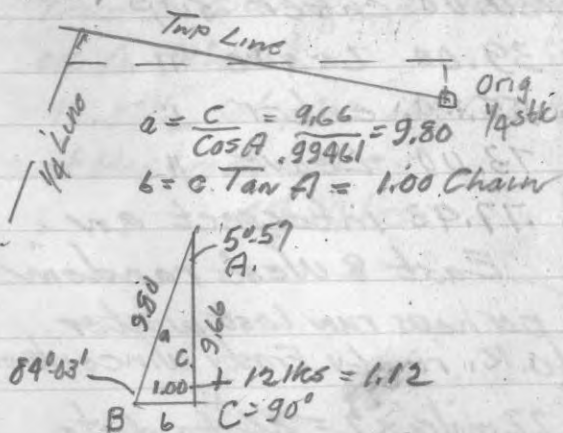 Twp Line
Orig
1/4 stk
1/4 Line
a = C / Cos A = 9.66 / .99461 = 9.80
b = c. Tan A = 1.00 Chain
5°-57
A.
9.80
a
C.
9.66
84°-03'
1.00 + 12 lks = 1.12
B
b
C = 90°